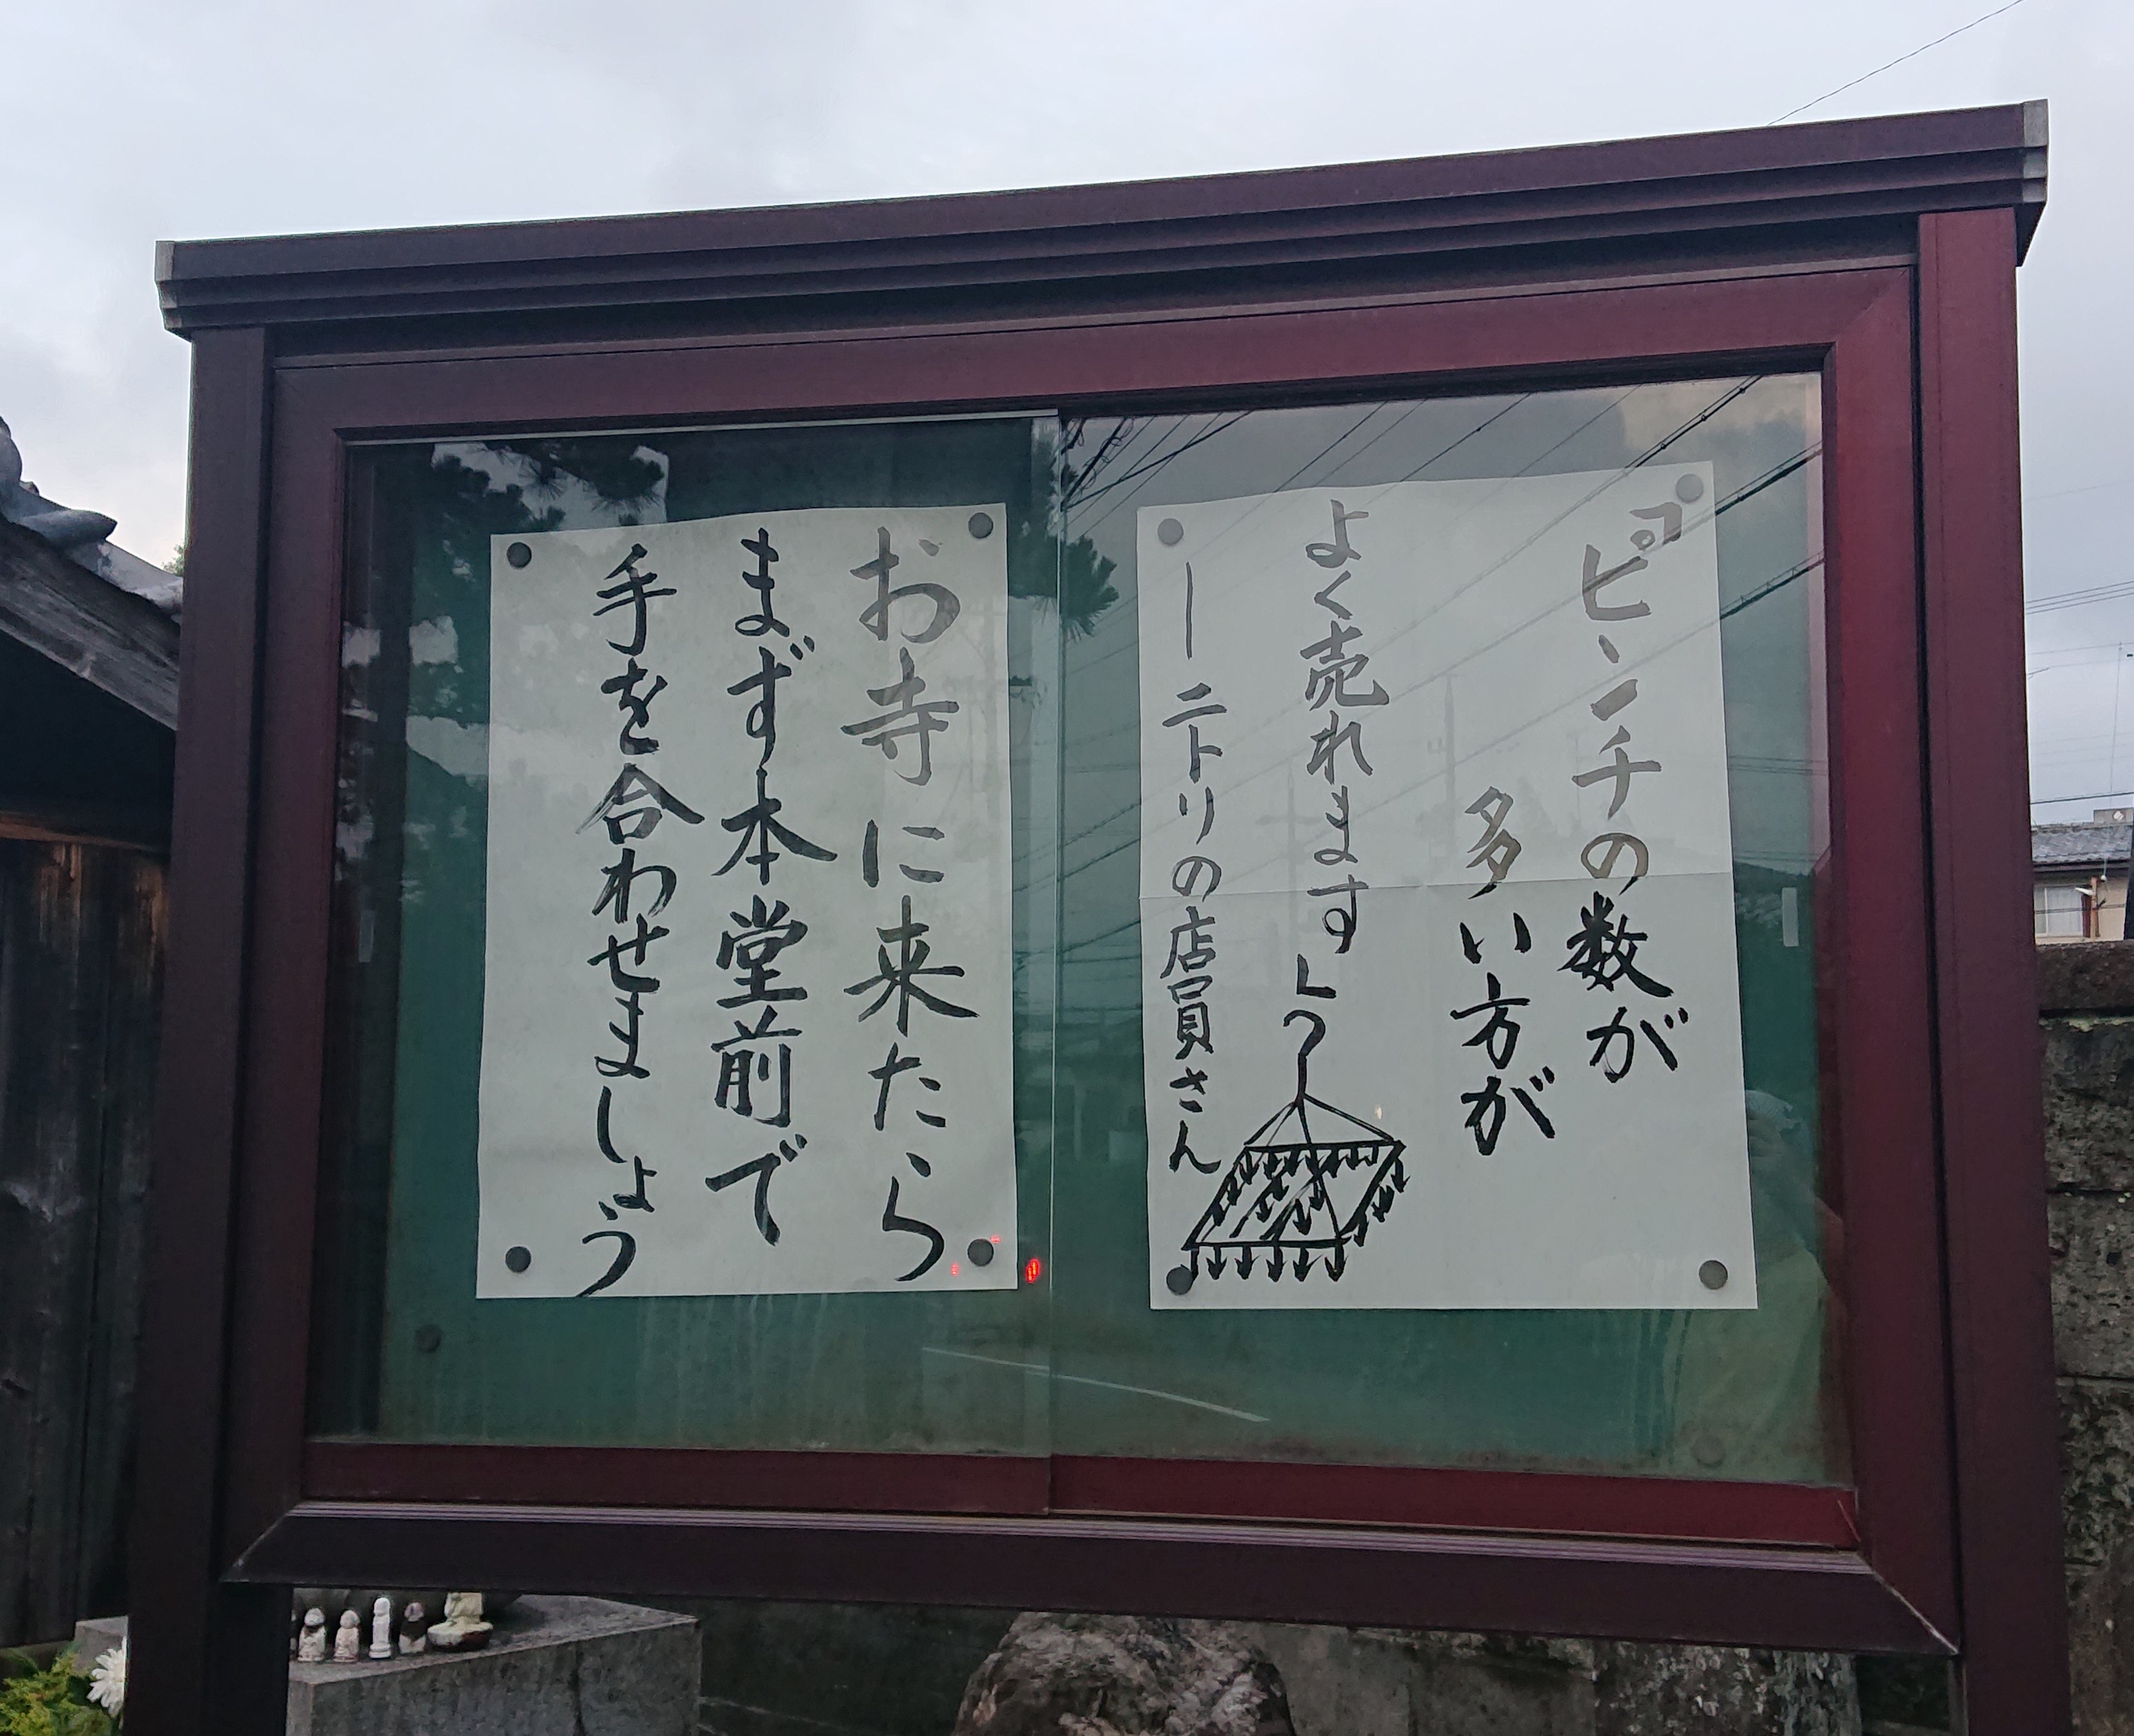 「ピンチの数が
多い方が
よく売れます」
―ニトリの店員さん
お寺に来たら
まず本堂前で
手を合わせましょう